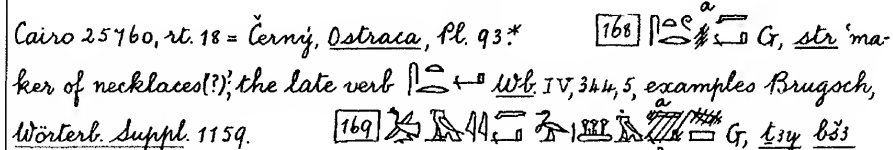 Cairo 25760, rt. 18 = Černý, Ostraca, Pl. 93.* [168] G, str 'ma-
ker of necklaces(?)', the late verb Wb. IV, 344, 5, examples Brugsch,
Wörterb. Suppl. 1159. [169] G, ṯꜣy bšꜣ